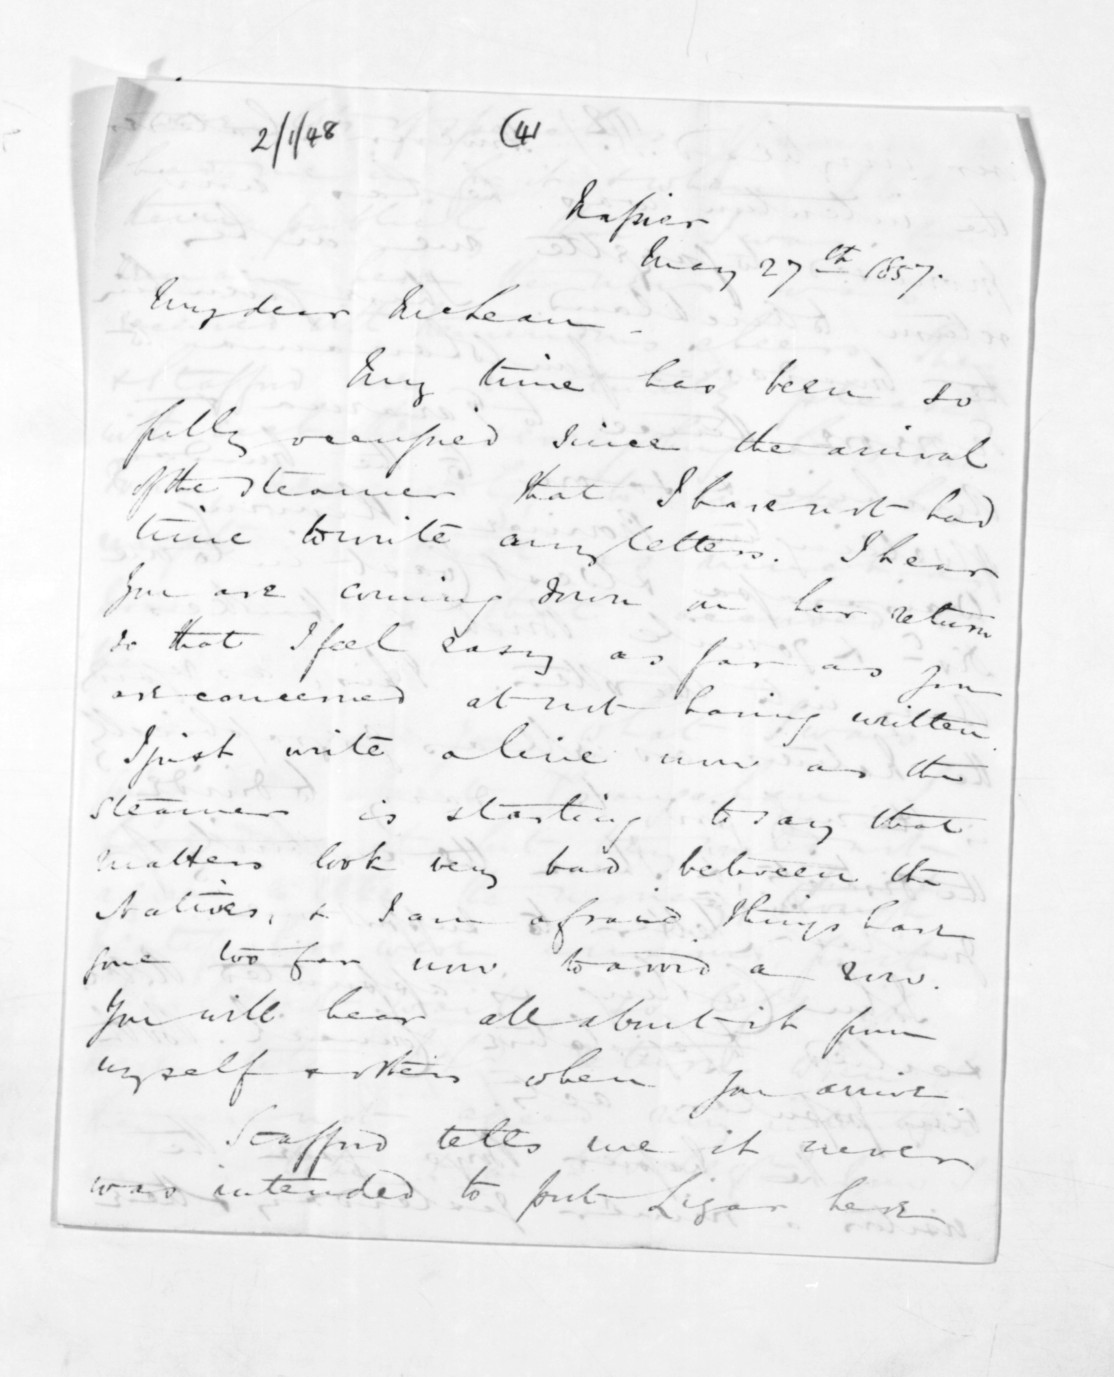 2/1/48 (4)
Napier
May 27th 1857.
My dear McLean -
My time has been so
fully occupied since the arrival
of the steamer that I have not had
time to write any letters. I hear
you are coming down on her return
so that I feel easy as far as you
are concerned at not having written.
I just write a line now as the
steamer is starting to say that
matters look very bad between the
Natives, & I am afraid things have
gone too far now to avoid a row.
You will hear all about it from
myself & others when you arrive.
Stafford tells me it never
was intended to put Ligar here